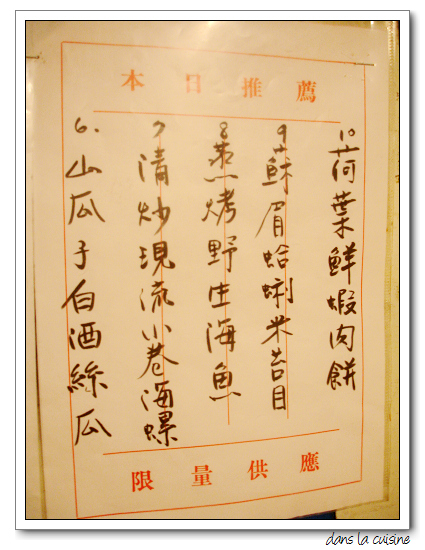 本日推薦
10 荷葉鮮蝦肉餅
9 蘇眉蛤蜊米苔目
8 蒸烤野生海魚
7 清炒現流小卷海螺
6. 山瓜子白酒絲瓜
限量供應
dans la cuisine